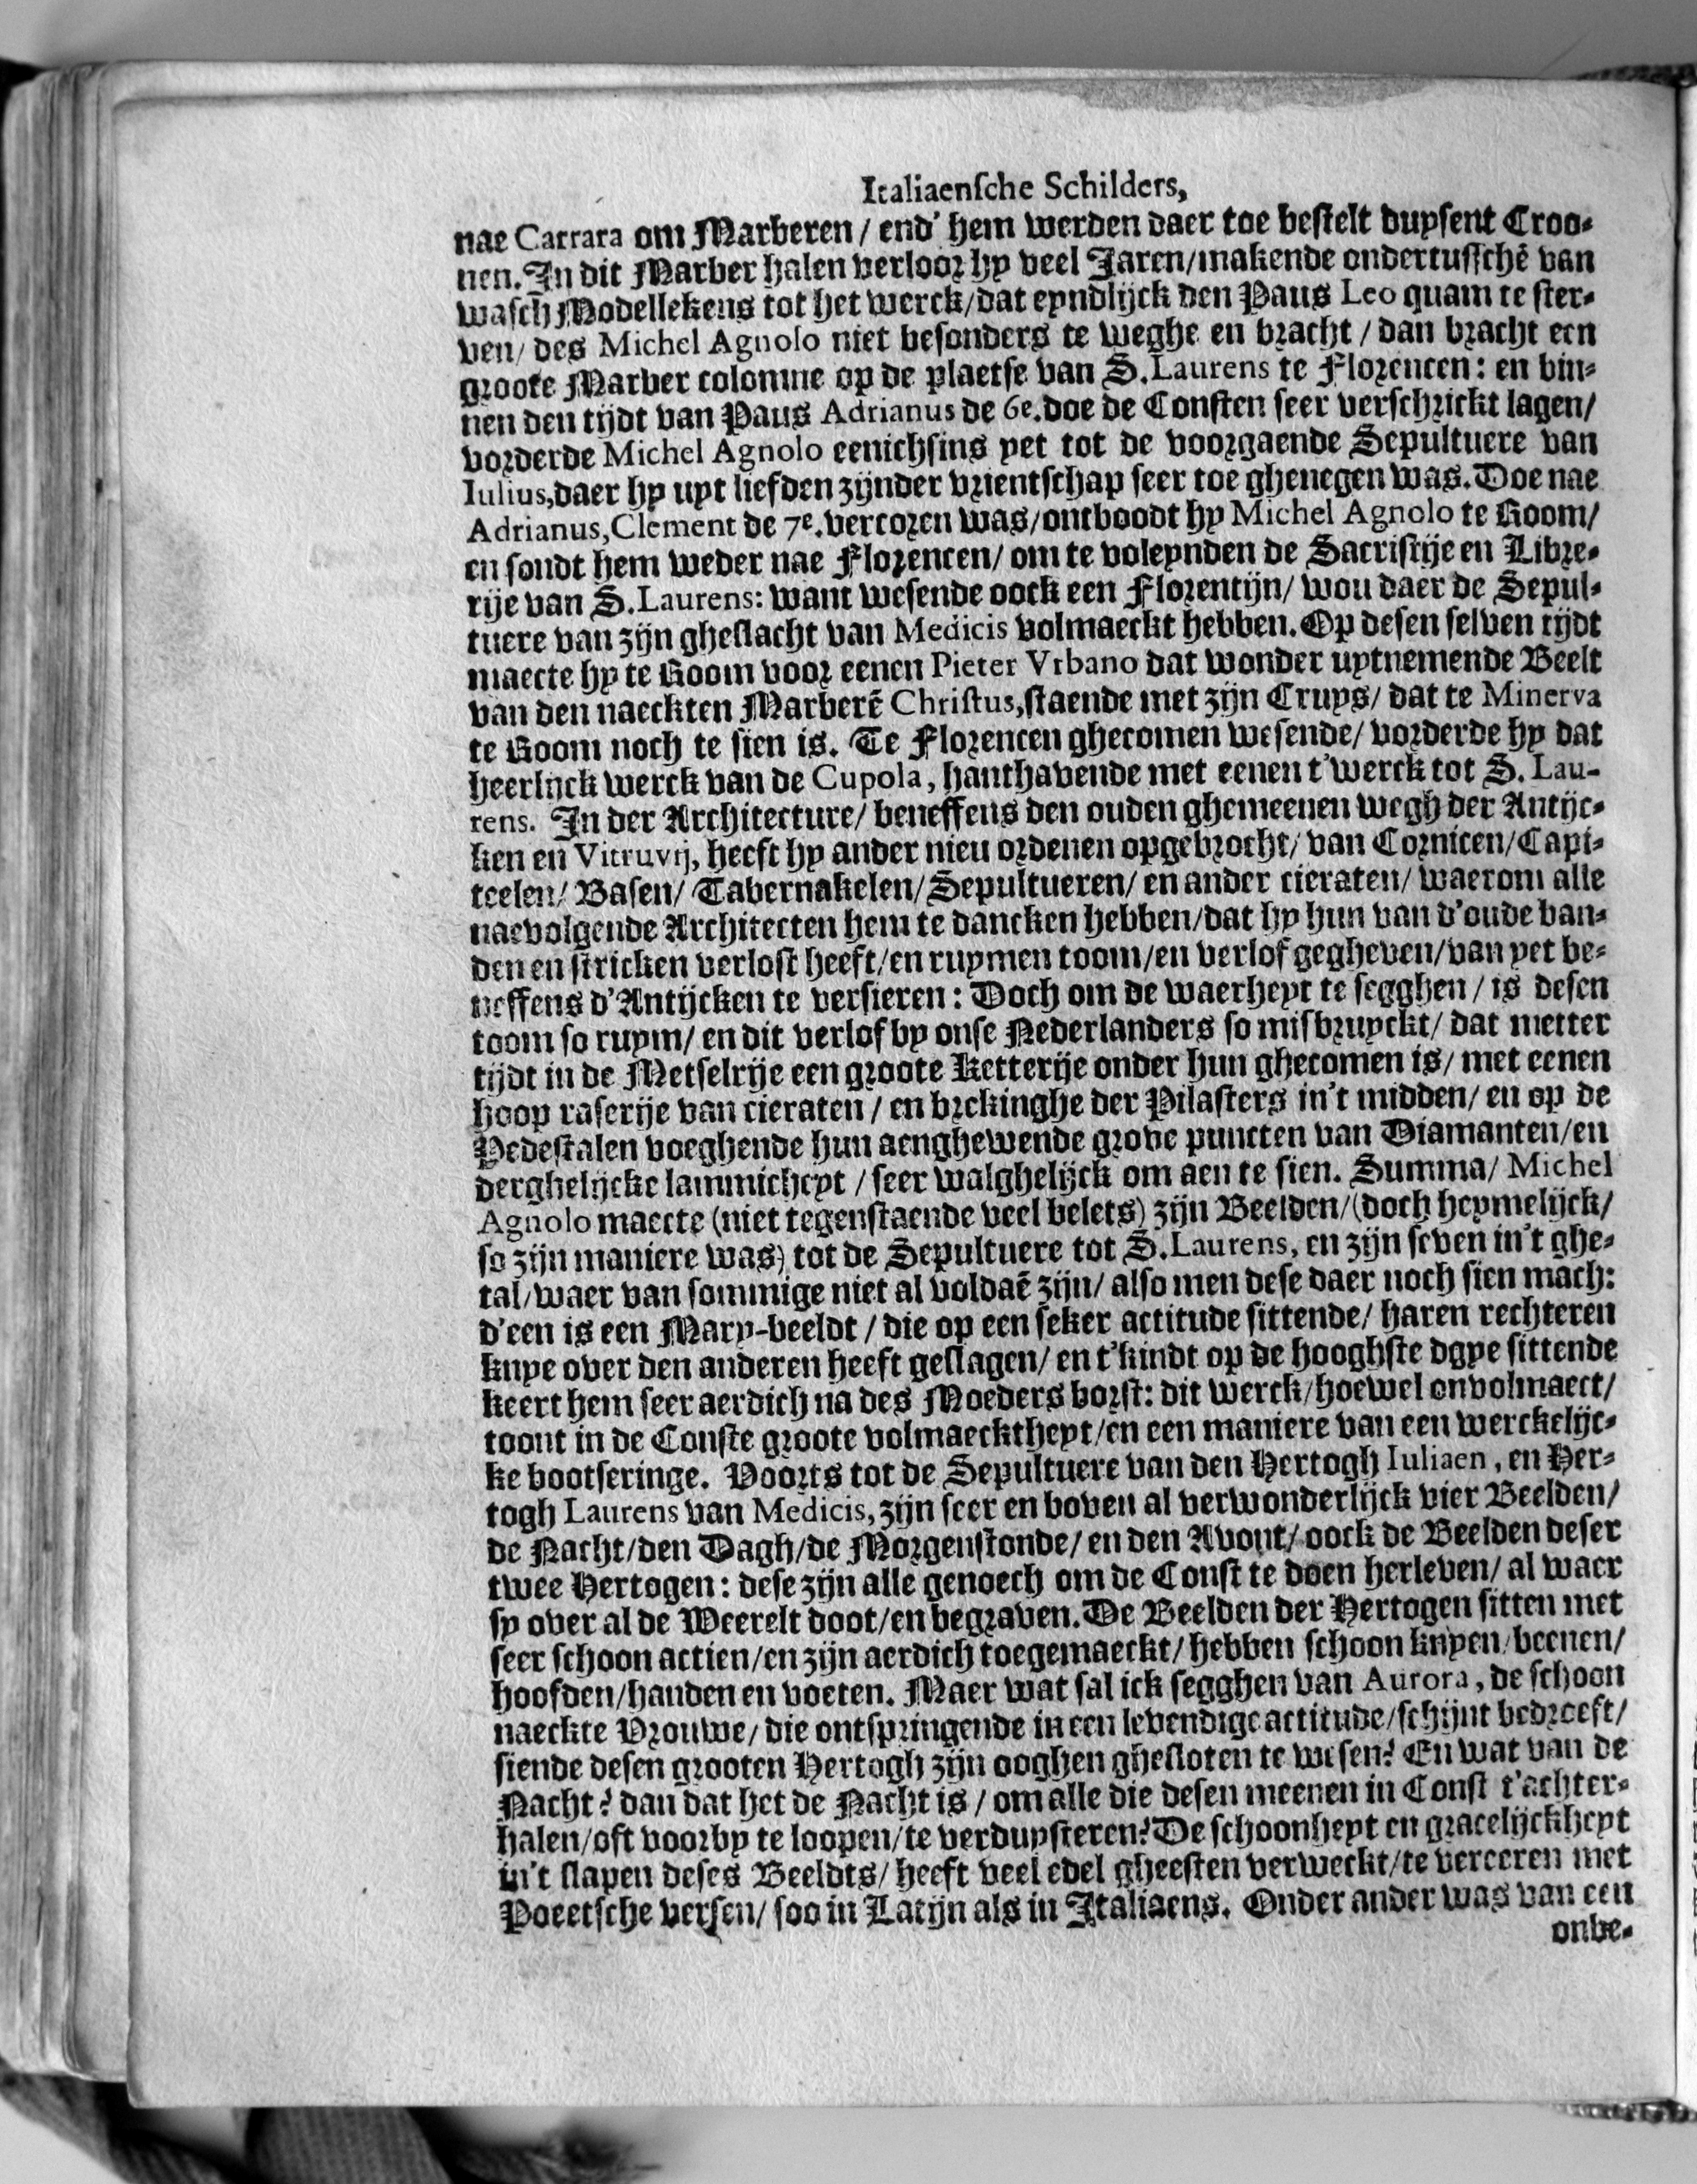 Italiaensche Schilders,
nae Carrara om Marberen / end' hem werden daer toe bestelt duysent Croo-
nen. In dit Marber halen verloor hy veel Jaren/makende ondertusschē van
wasch Modellekens tot het werck/dat eyndlijck den Paus Leo quam te ster-
ven/ des Michel Agnolo niet besonders te weghe en bracht / dan bracht een
groote Marber colomne op de plaetse van S. Laurens te Florencen: en bin-
nen den tijdt van Paus Adrianus de 6e. doe de Consten seer verschrickt lagen/
vorderde Michel Agnolo eenichsins yet tot de voorgaende Sepultuere van
Iulius, daer hy uyt liefden zijnder vrientschap seer toe ghenegen was. Doe nae
Adrianus, Clement de 7e. vercoren was/ontboodt hy Michel Agnolo te Room/
en sondt hem weder nae Florencen/ om te voleynden de Sacristije en Libre-
rije van S. Laurens: want wesende oock een Florentijn/ wou daer de Sepul-
tuere van zijn gheslacht van Medicis volmaeckt hebben. Op desen selven tijdt
maecte hy te Room voor eenen Pieter Vrbano dat wonder uytnemende Beelt
van den naeckten Marberē Christus, staende met zijn Cruys/ dat te Minerva
te Room noch te sien is. Te Florencen ghecomen wesende/ vorderde hy dat
heerlijck werck van de Cupola, hanthavende met eenen t'werck tot S. Lau-
rens. In der Architecture/ beneffens den ouden ghemeenen wegh der Antijc-
ken en Vitruvij, heeft hy ander nieu ordenen opgebrocht/ van Cornicen/Capi-
teelen/ Basen/ Tabernakelen/ Sepultueren/ en ander cieraten/ waerom alle
naevolgende Architecten hem te dancken hebben/dat hy hun van d'oude ban-
den en stricken verlost heeft/en ruymen toom/en verlof gegheven/van yet be-
neffens d'Antijcken te versieren: Doch om de waerheyt te segghen / is desen
toom so ruym/ en dit verlof by onse Nederlanders so misbruyckt/ dat metter
tijdt in de Metselrije een groote Ketterije onder hun ghecomen is/ met eenen
hoop raserije van cieraten / en brekinghe der Pilasters in't midden/ en op de
Pedestalen voeghende hun aenghewende grove puncten van Diamanten/en
derghelijcke lammicheyt / seer walghelijck om aen te sien. Summa/ Michel
Agnolo maecte (niet tegenstaende veel belets) zijn Beelden/(doch heymelijck/
so zijn maniere was) tot de Sepultuere tot S. Laurens, en zijn seven in't ghe-
tal/waer van sommige niet al voldaē zijn/ also men dese daer noch sien mach:
d'een is een Mary-beeldt / die op een seker actitude sittende/ haren rechteren
knye over den anderen heeft geslagen/ en t'kindt op de hooghste dgye sittende
keert hem seer aerdich na des Moeders borst: dit werck/hoewel onvolmaect/
toont in de Conste groote volmaecktheyt/en een maniere van een werckelijc-
ke bootseringe. Voorts tot de Sepultuere van den Hertogh Iuliaen, en Her-
togh Laurens van Medicis, zijn seer en boven al verwonderlijck vier Beelden/
de Nacht/den Dagh/de Morgenstonde/ en den Avont/ oock de Beelden deser
twee Hertogen: dese zijn alle genoech om de Const te doen herleven/ al waer
sy over al de Weerelt doot/en begraven. De Beelden der Hertogen sitten met
seer schoon actien/en zijn aerdich toegemaeckt/ hebben schoon knyen/beenen/
hoofden/handen en voeten. Maer wat sal ick segghen van Aurora, de schoon
naeckte Vrouwe/ die ontspringende in een levendige actitude/schijnt bedroeft/
siende desen grooten Hertogh zijn ooghen ghesloten te wesen? En wat van de
Nacht? dan dat het de Nacht is / om alle die desen meenen in Const t'achter-
halen/oft voorby te loopen/te verduysteren? De schoonheyt en gracelijckheyt
in't slapen deses Beeldts/ heeft veel edel gheesten verweckt/te verceren met
Poeetsche versen/ soo in Latijn als in Italiaens. Onder ander was van een
onbe-